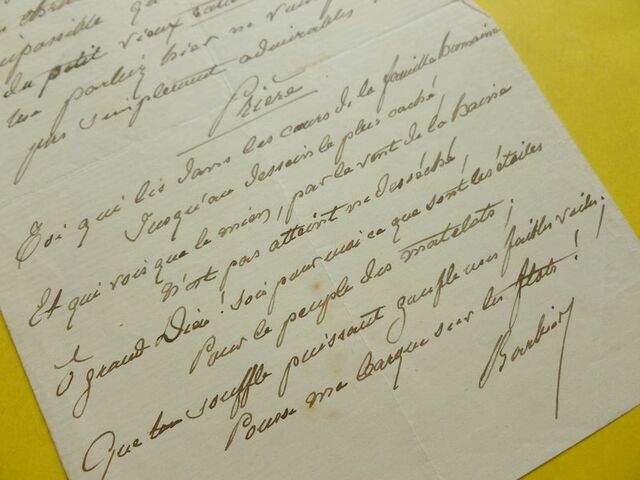 impossible
du petit vieux
me parliez hier ne vous
pas simplement admirables !
Prière
Toi qui lis dans les cœurs de la famille humaine
Jusqu'au dessein le plus caché,
Et qui vois que le mien, par le vent de la haine
N'est pas atteint ni desséché,
O grand Dieu ! sois pour moi ce que sont les étoiles
Pour le peuple des matelots ;
Que ton souffle puissant gonfle mes faibles voiles ;
Pousse ma barque sur les flots !
Barbier